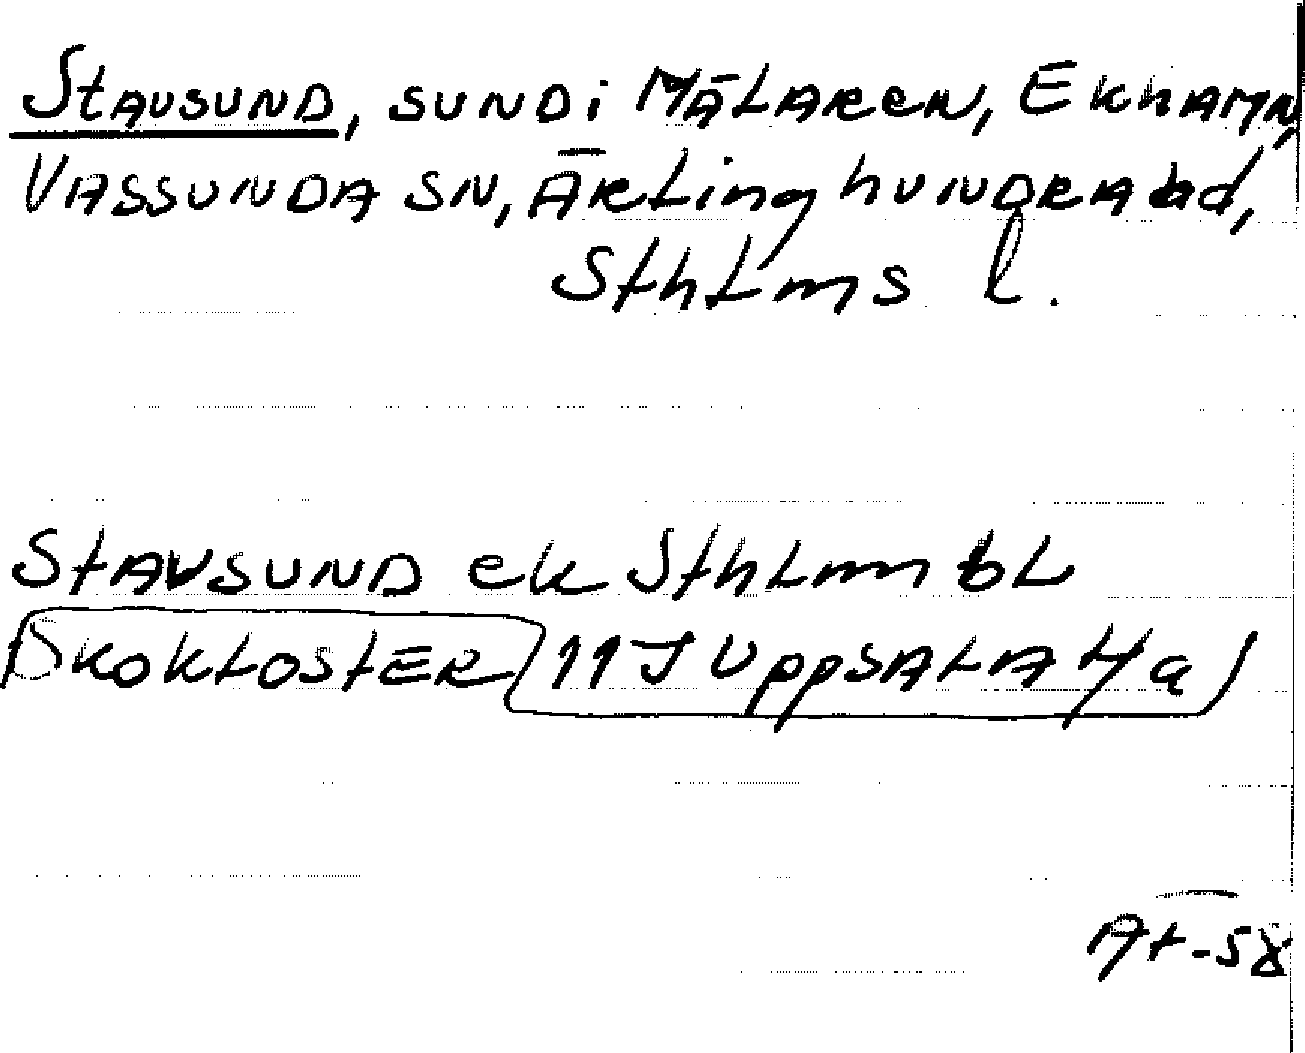 Stavsund, sund i Mälaren, Ekhamn,
Vassunda sn, Ärlinghundra hd,
Sthlms l.
Stavsund ek Sthlm bl
Skokloster 11 J Uppsala 4/a
Ät-58